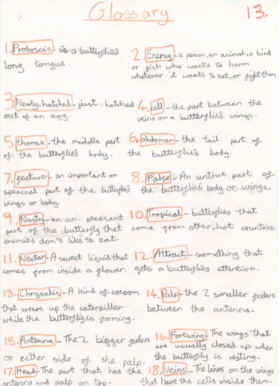 Glossary
13.
1. Proboscis is a butterflies
long tongue.
2. Enemy - a person, or animal, a bird
or fish who wants to harm
whatever it wants to eat, or fight them
3. Newly hatched - just hatched
out of an egg.
4. cell - the part between the
veins on a butterflies wings.
5. thorax - the middle part
of the butterflies body.
6. Abdomen - the tail part of
the butterflies body.
7. feature - an important or
special part of the butterflies
wings or body
8. Base - An
part of
the butterflies body or wings.
9. Nasty - an un-pleasant
part of the butterfly that
animals don't like to eat.
10. Tropical - butterflies that
come from other, hot countries
11. Nectar - A sweet liquid that
comes from inside a flower.
12. Attract - something that
gets a butterflies attention.
13. Chrysalis - A kind of cocoon
that wraps up the caterpillar
while the butterfly is forming.
14. Palp - the 2 smaller feelers
between the antenna.
15. Antenna - The 2 bigger feelers
on either side of the palp.
16. Forewing - The wings that
are usually closed up when
the butterfly is resting.
17. Head - The part that has the
antenna and palp on top.
18. Veins - The lines on the wings
that have the cells inside them